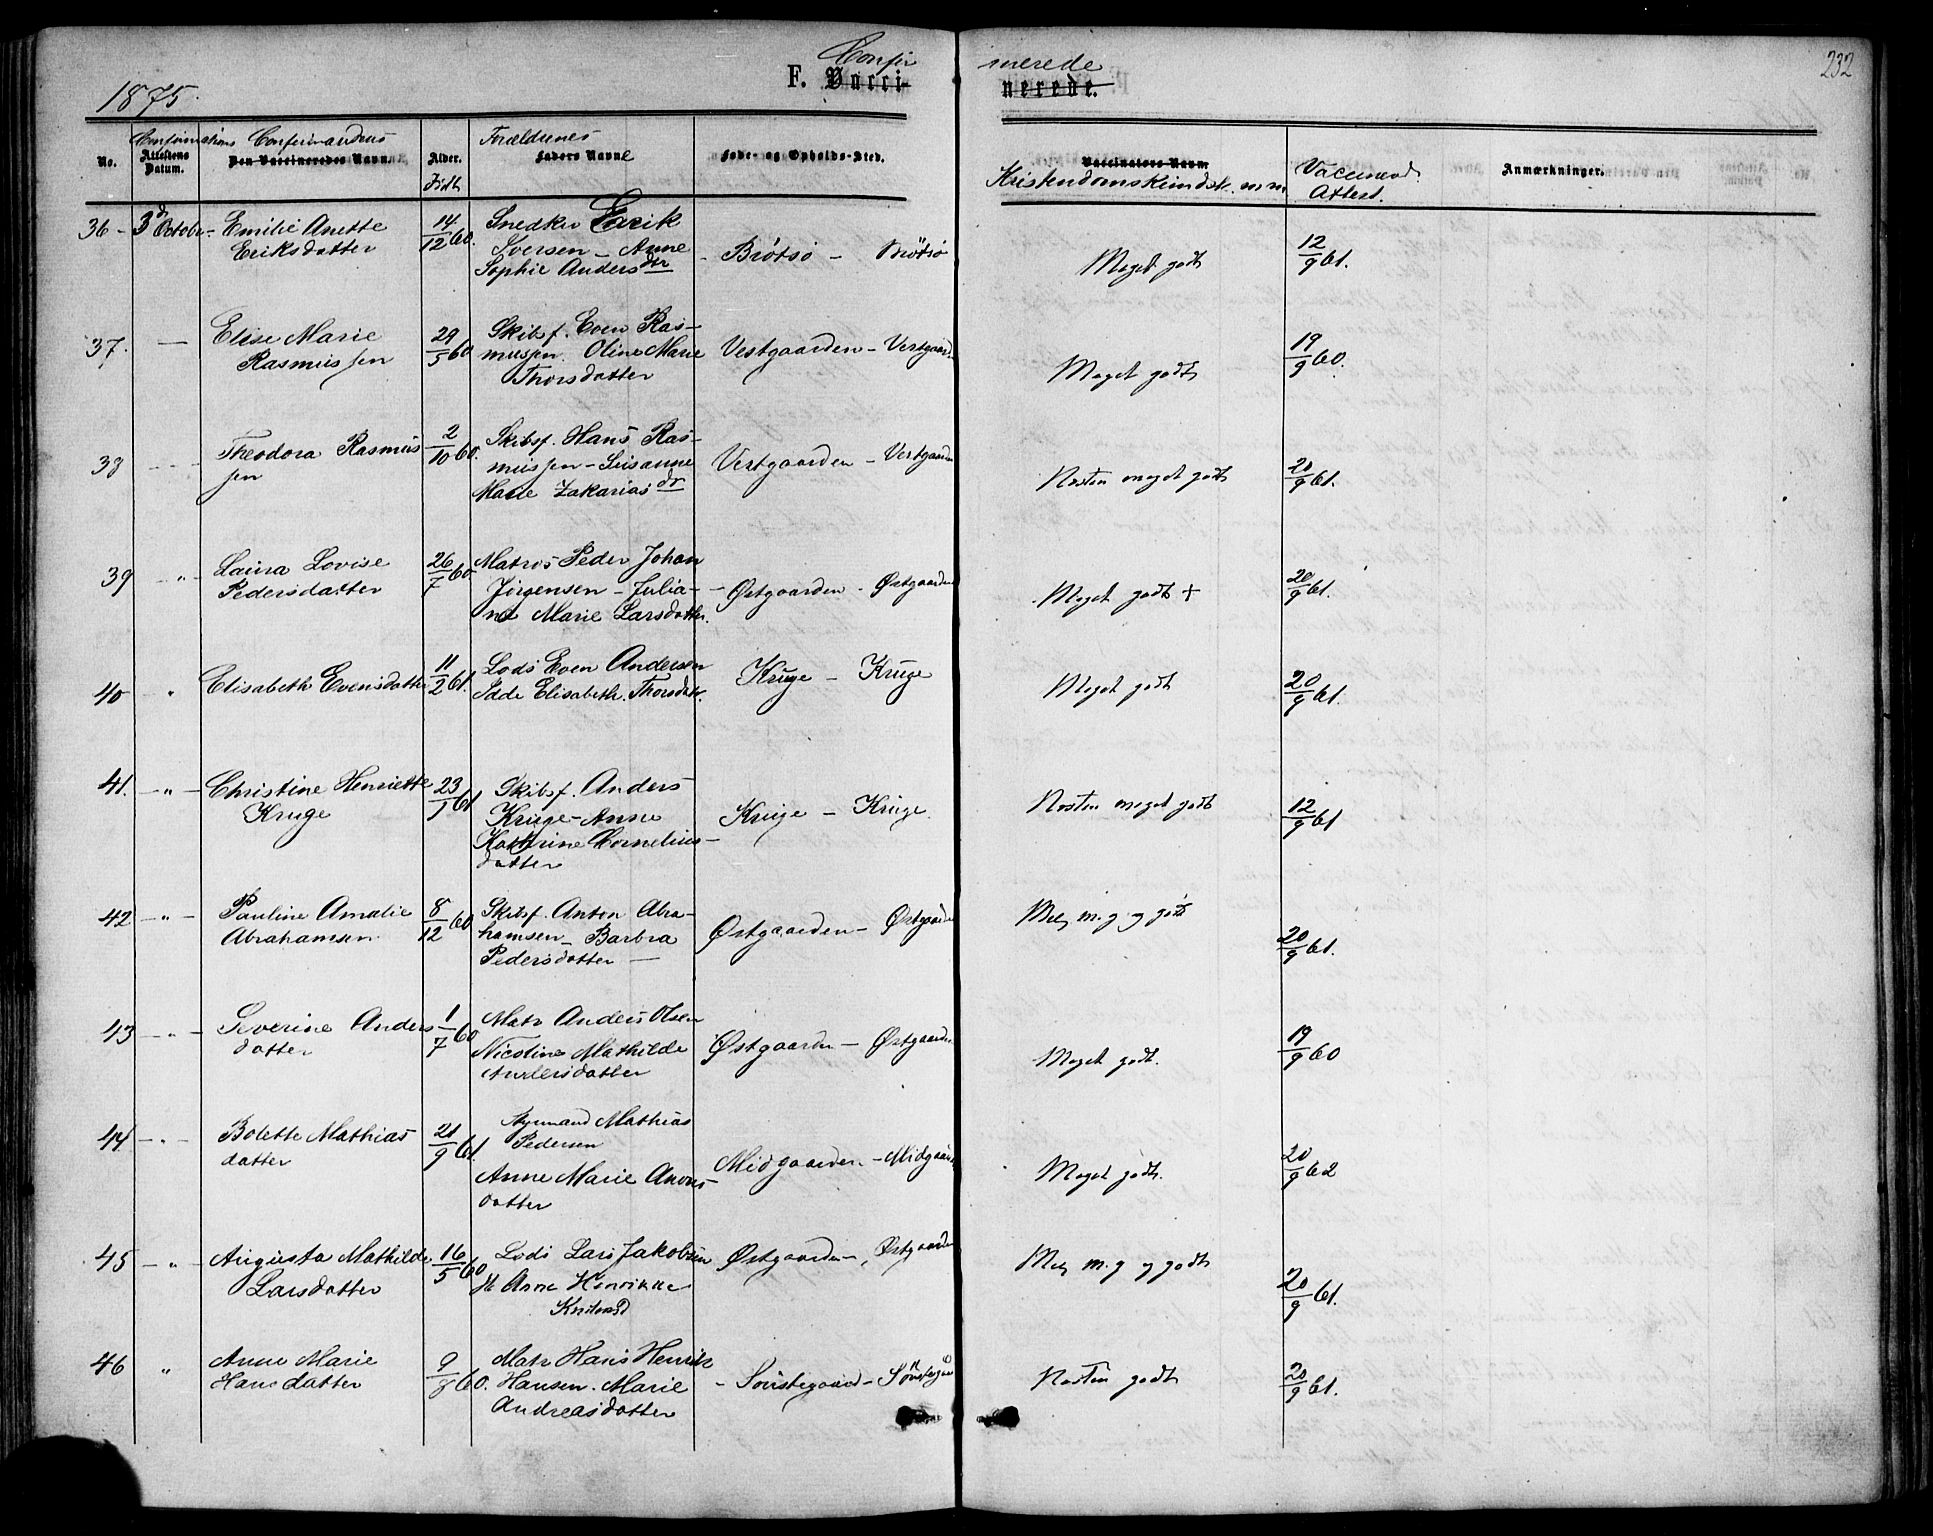 1875.
Confir
F. Vacci-
merede
nerede.
232
No.
Confirmations
Attestens
Datum.
Confirmandens
Den Vaccineredes Navn.
Alder.
Født
Forældrenes
Faders Navne
Føde- og Opholds-Sted.
Vaccinators Navn.
Kristendomskundsk. m m
Vaccinerede
Attest.
Anmærkninger.
36 - 3d October - Emilie Anette
Eriksdatter
14/12 60.
Snedker Erik
Iversen - Anne
Sophie Andersdtr
- Brøtsø - Brøtsø
Meget godt
12/9 61.
37. — Elise Marie
Rasmussen
29/5 60
Skibsf. Even Ras-
mussen. Oline Marie
Thorsdatter
Vestgaarden - Vestgaard
Meget godt
19/9 60.
38 Theodora Rasmus
sen
2/10 60.
Skibsf. Hans Ras-
mussen - Susanne
Marie Zakariasdr
Vestgaarden - Vestgaarden
Næsten meget godt
20/9 61.
39 - " - Laura Lovise
Pedersdatter
26/7 60
Matros Peder Johan
Jørgensen - Julia-
ne Marie Larsdatter.
- Østgaarden - Østgaarden
Meget godt +
20/9 61.
40 " Elisabeth Evensdatter
11/2 61.
Lods Even Andersen
Idde Elisabeth. Thorsdatr.
Kruge - Kruge
Meget godt
20/9 61.
41. - " - Christine Henriette
Kruge
23/1 61
Skibsf. Anders
Kruge - Anne
Kathrine Cornelius-
datter
Kruge - Kruge.
Næsten meget godt
12/9 61
42 - " - Pauline Amalie
Abrahamsen
8/12 60
Skibsf. Anton Abra-
hamsen - Barbra
Pedersdatter —
Østgaarden - Østgaarden
Mell m. g. og godt
20/9 61.
43 - " - Severine Anders-
datter
1/7 60
Matr Anders Olsen
Nicoline Mathilde
Andersdatter
Østgaarden - Østgaarden
Meget godt.
19/9 60
44 - " - Bolette Mathias
datter
21/9 61.
Mathias
Pedersen
Anne Marie
datter
Midgaarden - Midgaard
Meget godt.
20/9 62
45 - " - Augusta Mathilde
Larsdatter
16/5 60
Lods Lars Jakobsen
Anne Henrikke
Østgaarden -, Østgaarden
Mell m. g. og godt
20/9 61.
46 " Anne Marie
Hansdatter
9/8 60.
Matr Hans Henrik
Hansen. Marie
Andreasdatter
- Søndstegaard -
Næsten godt
20/9 61.